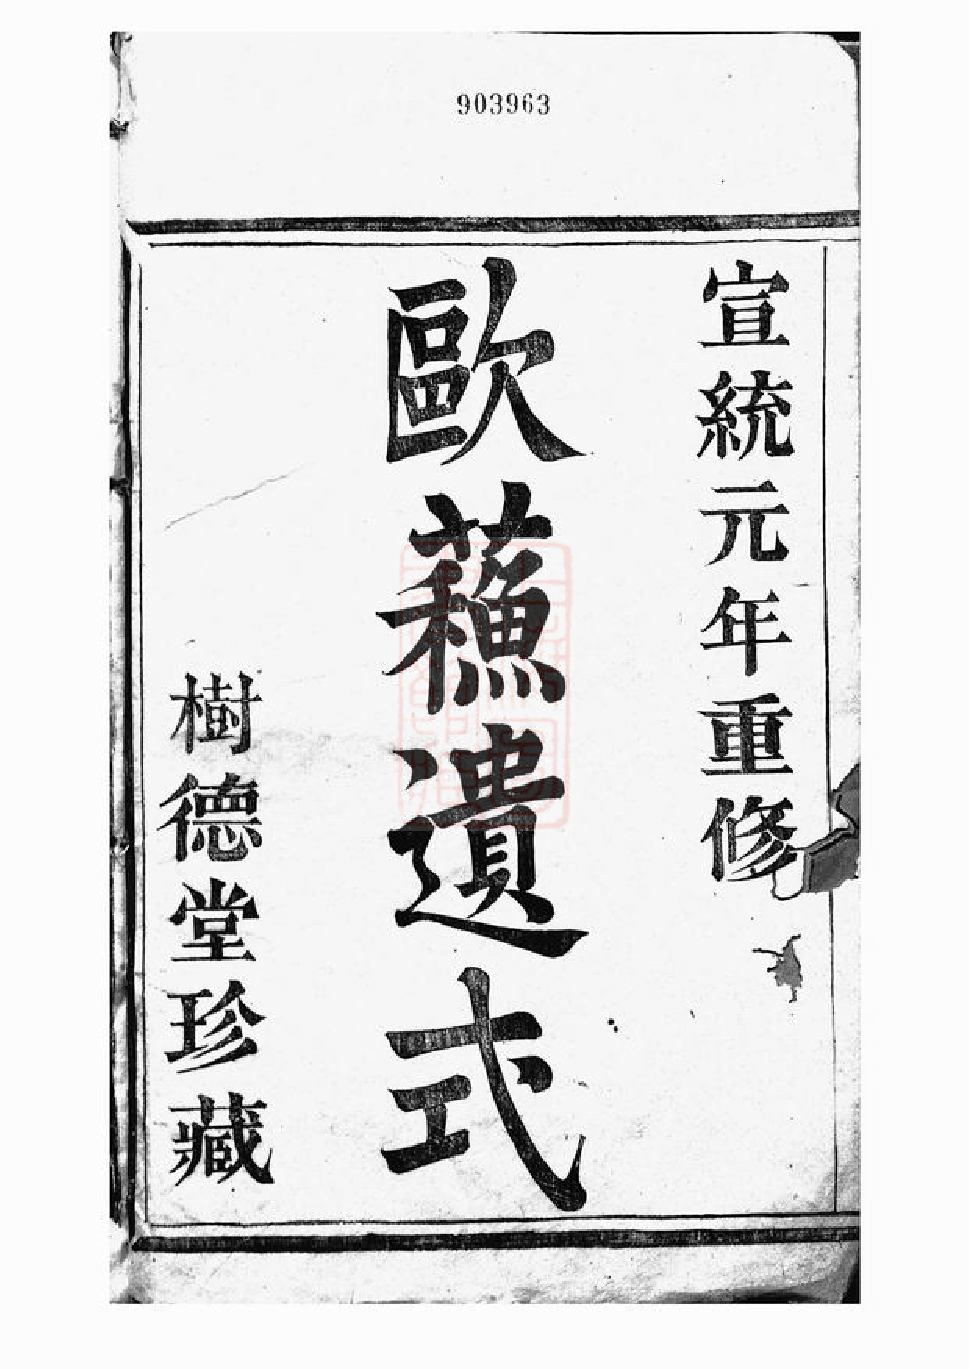 903963
宣統元年重修
歐蘓遺式
樹德堂珍藏